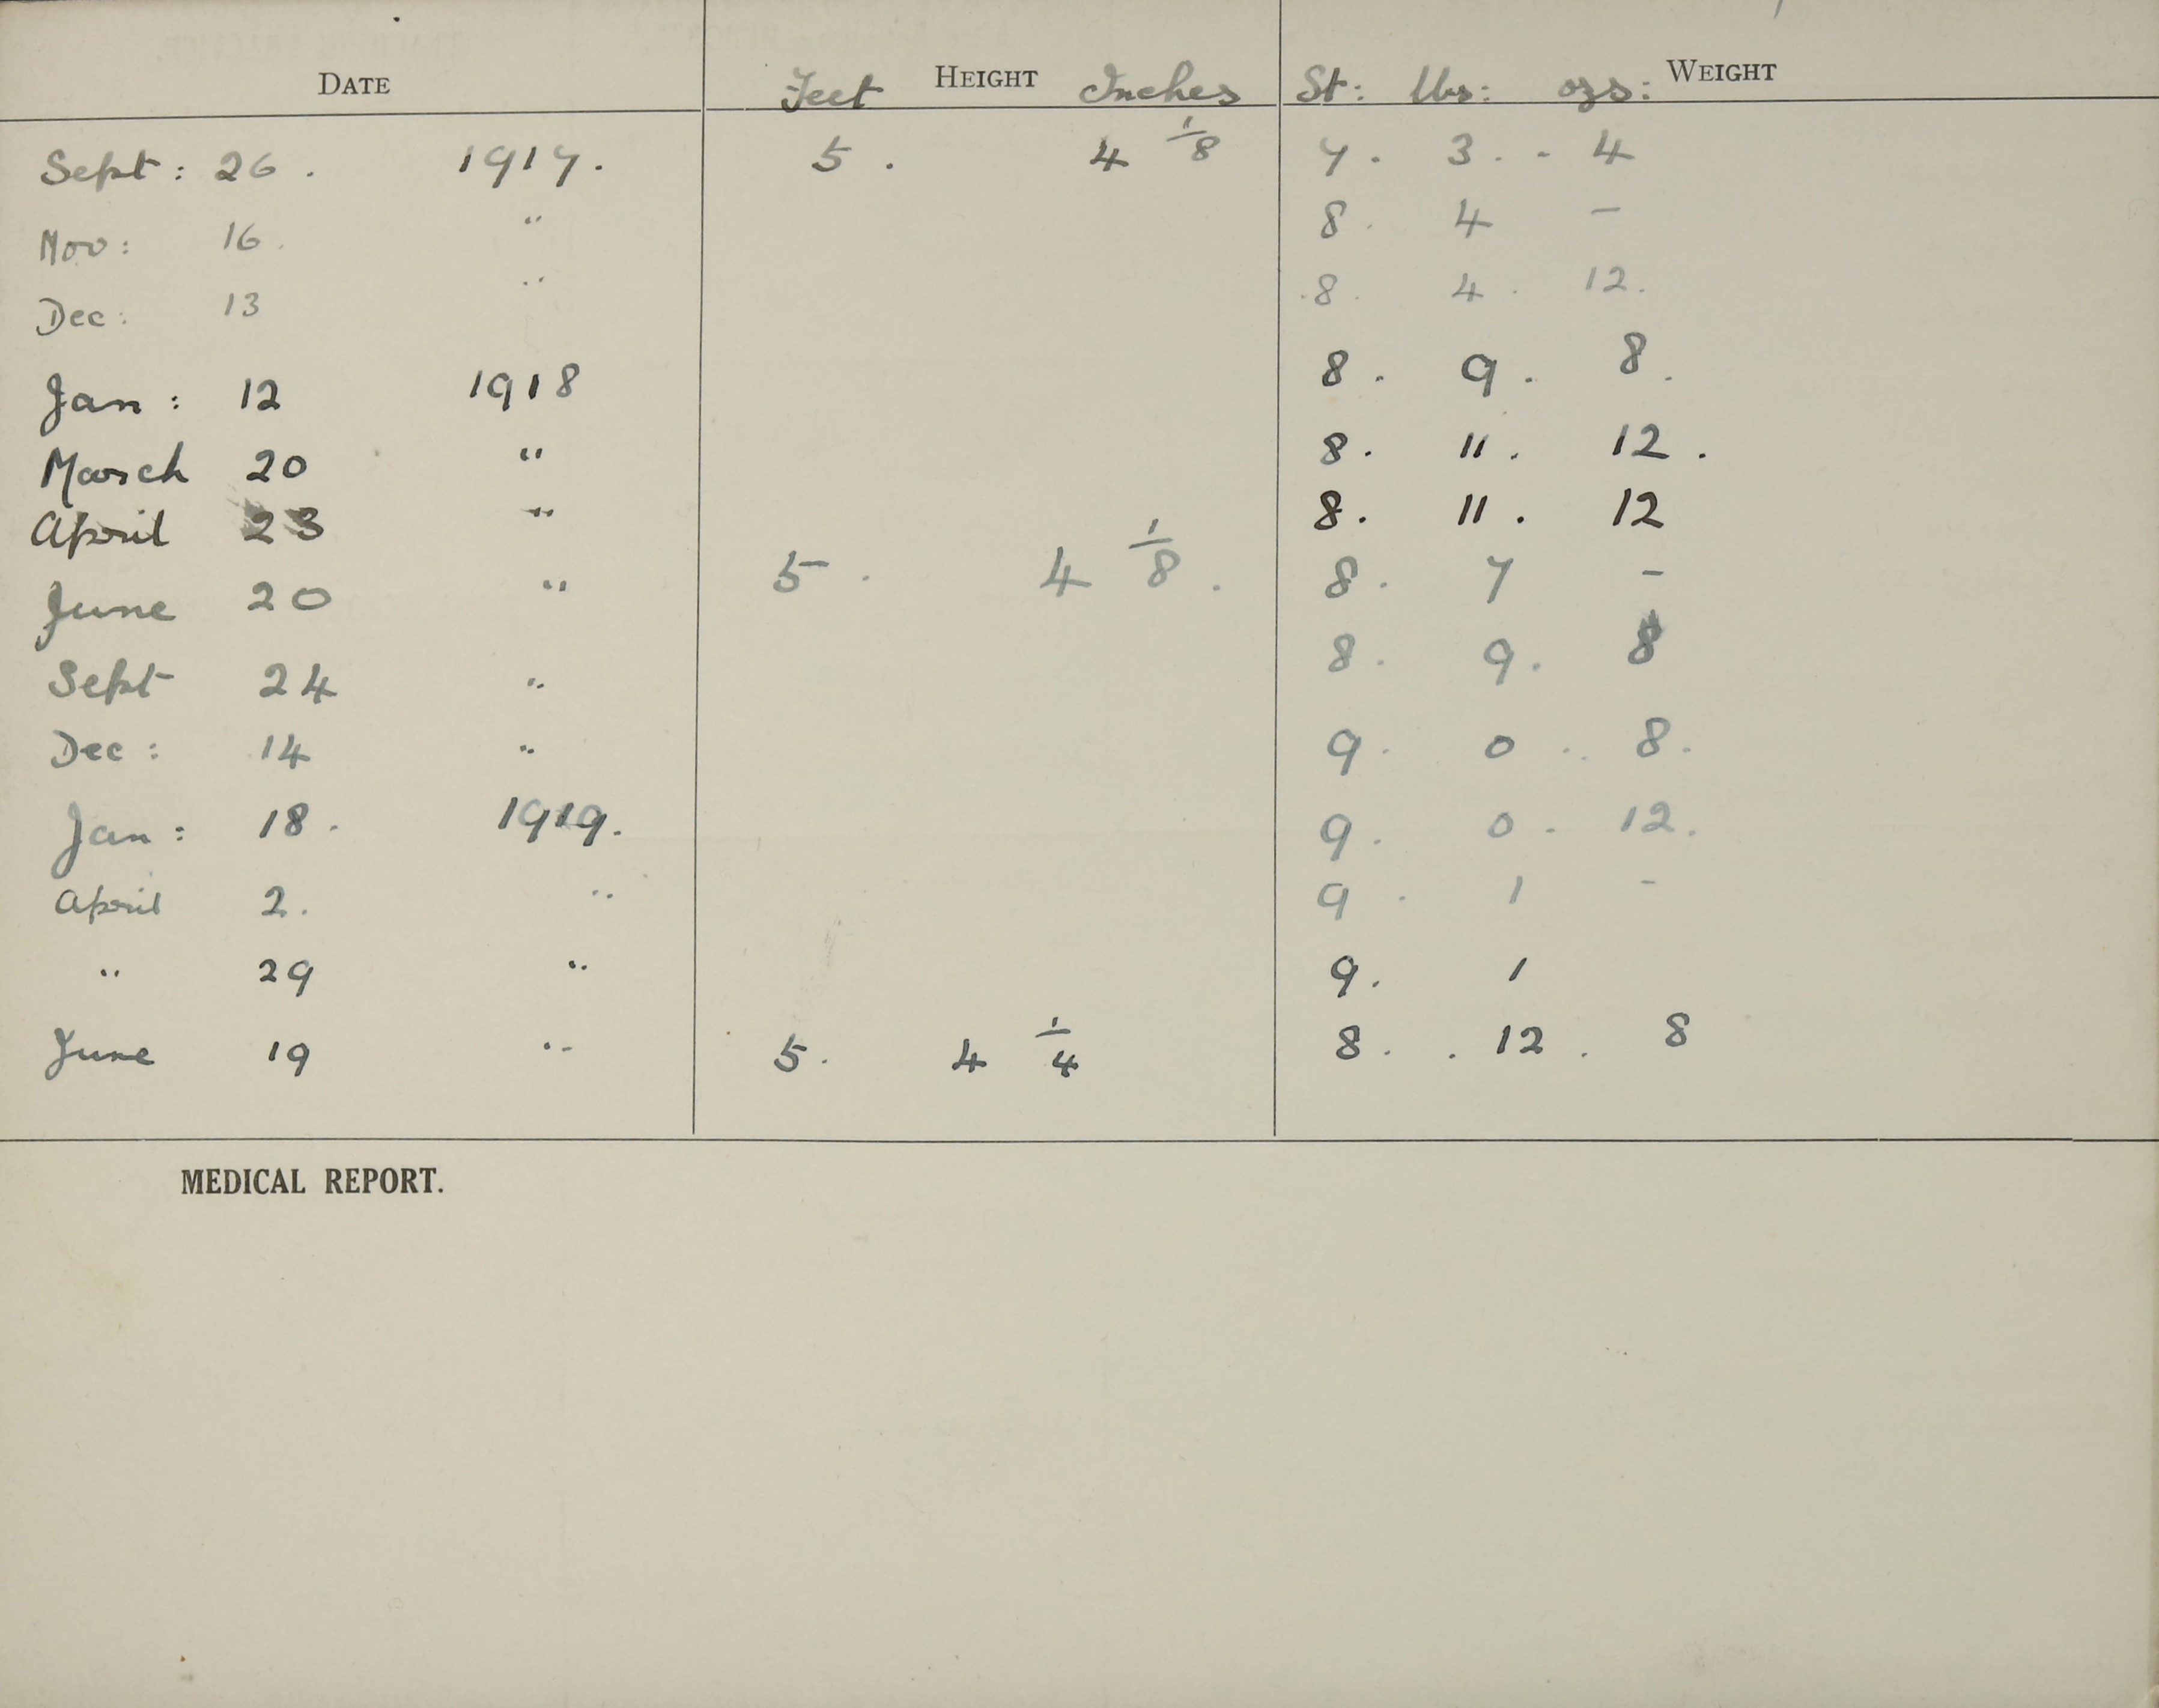 DATE Feet HEIGHT Inches St: lbs: ozs: WEIGHT
Sept: 26. 1917. 5. 4 1/8 7. 3. - 4
Nov: 16. " 8. 4 -
Dec: 13 " 8. 4. 12.
Jan: 12 1918 8. 9. 8.
March 20 " 8. 11. 12.
April 23 " 8. 11. 12
June 20 " 5. 4 1/8. 8. 7 -
Sept 24 " 8. 9. 8
Dec: 14 " 9. 0. 8.
Jan: 18. 1919. 9. 0. 12.
April 2. " 9. 1 -
" 29 " 9. 1
June 19 " 5. 4 1/4 8. 12. 8
MEDICAL REPORT.